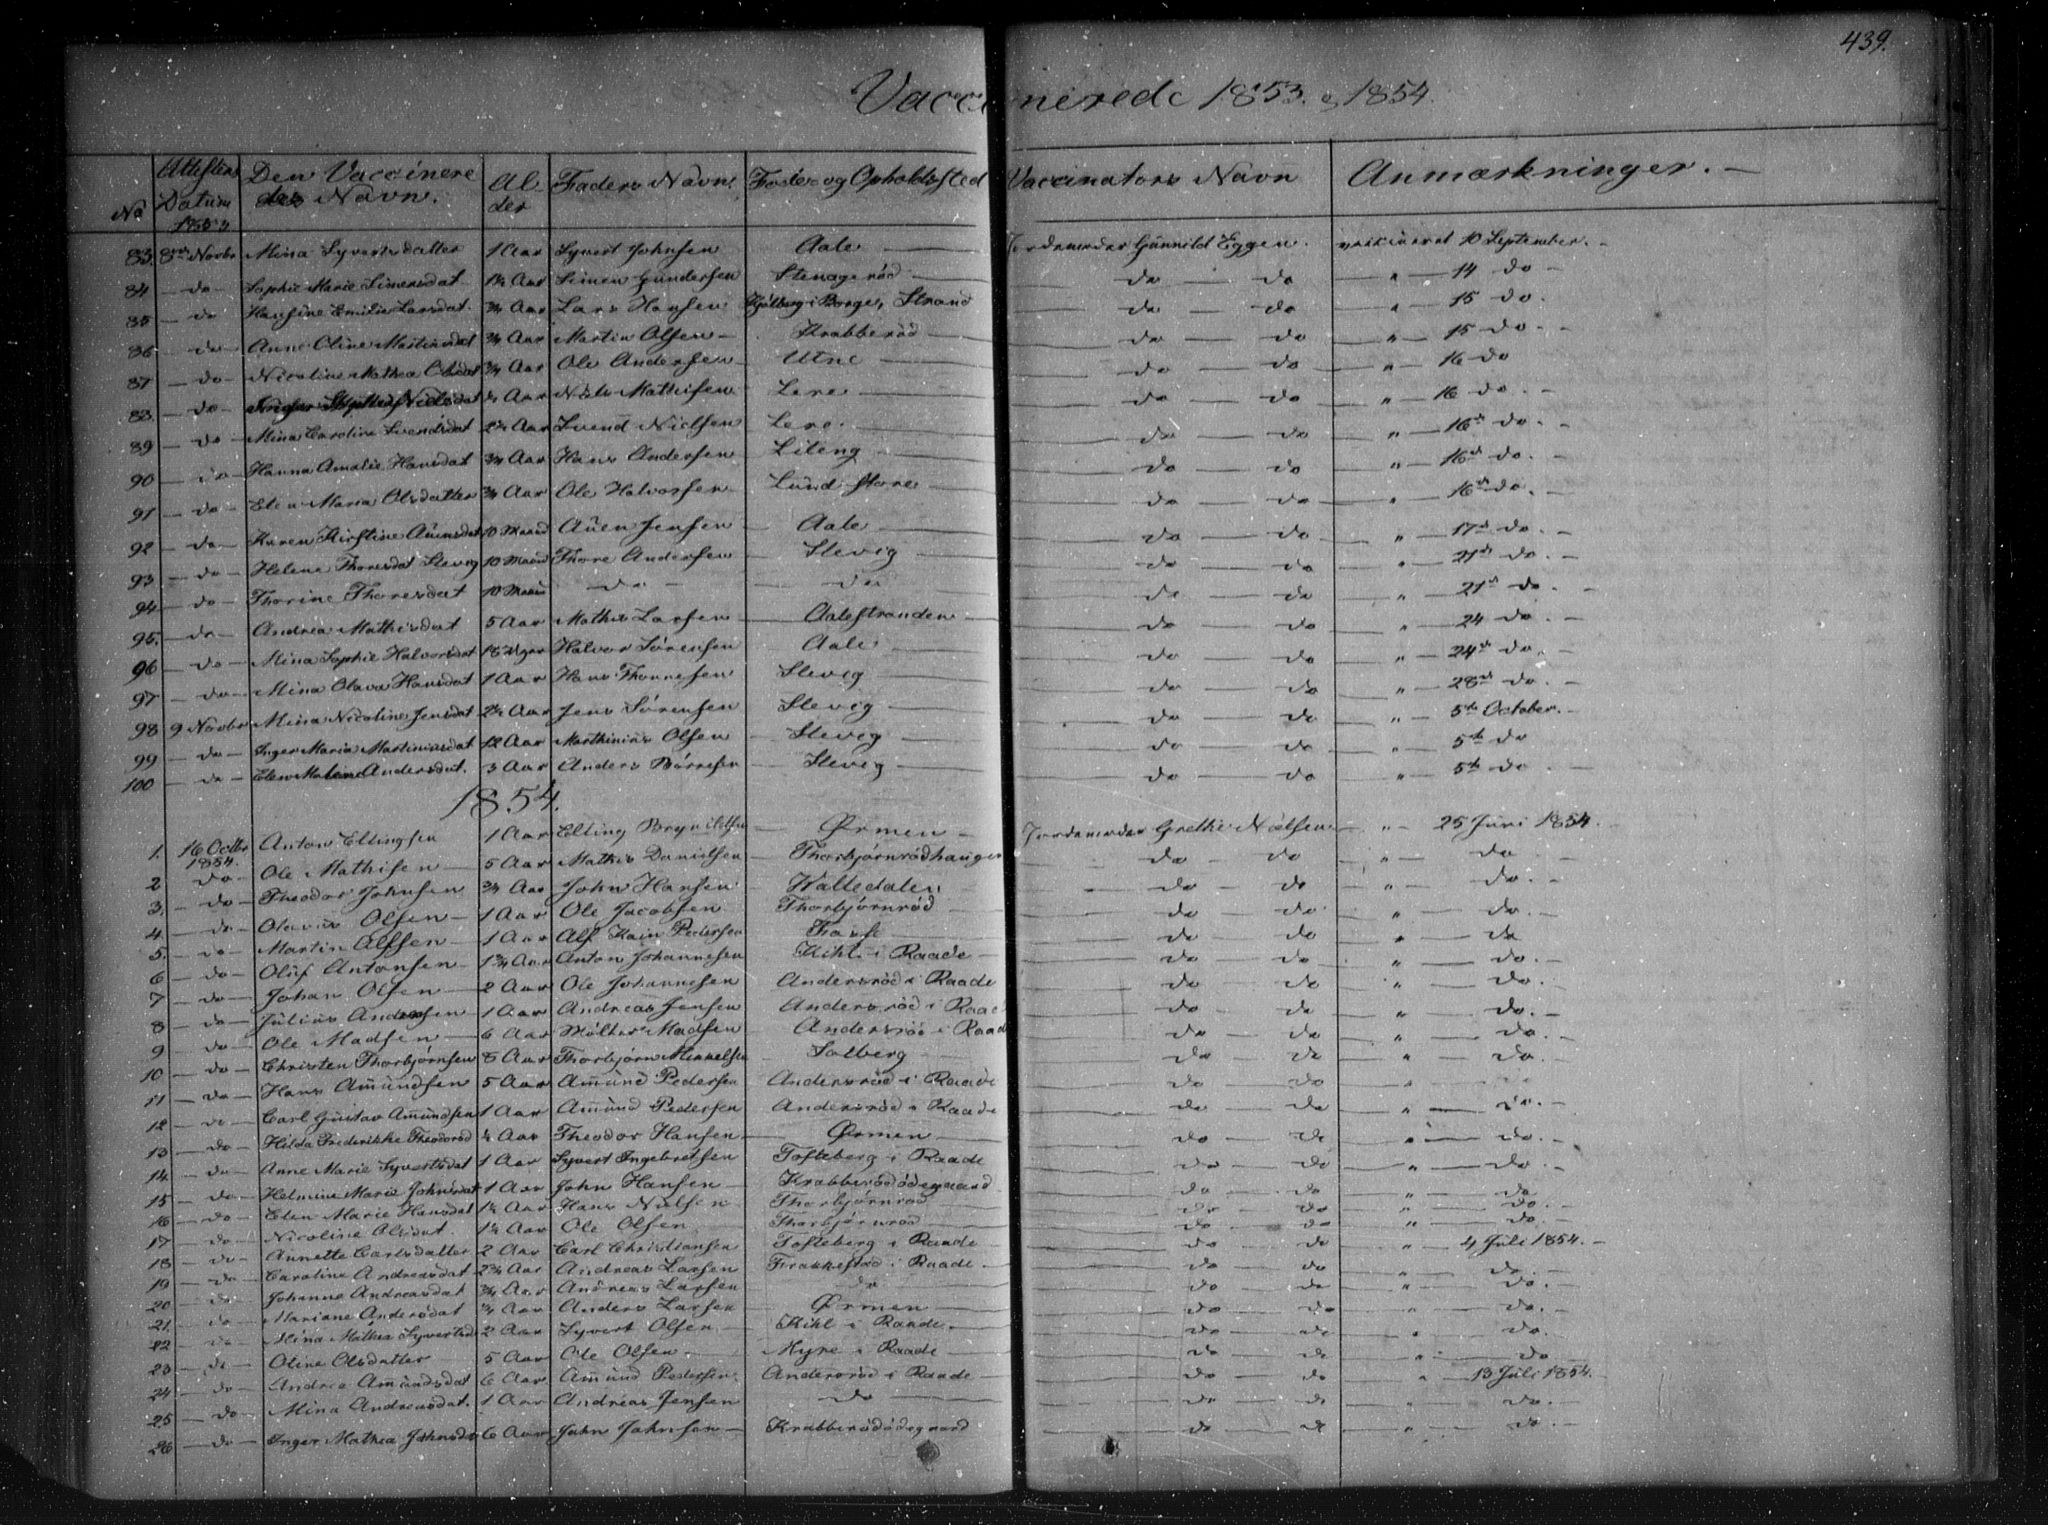 439.
Vaccinerede 1853. og 1854.
No Attestens Datum 1853 Den Vaccineredes Navn. Alder Faders Navn. Føde- og Opholdssted Vaccinators Navn Anmærkninger. —
83. 8de Novbr Mina Syvertsdatter 1 Aar Syvert Johnsen Aale — Jordemoder Gunnild Eggen. vaccineret 10 September. —
84 — do — Sophie Marie Simensdat 1¼ Aar Simen Gundersen Stenagerød — do — do " — 14 do —
85 — do Hansine Emilie Larsdat. ¾ Aar Lars Hansen Kjølberg i Borge, Strand — do — do " — 15 do.
86 — do — Anne Oline Martinsdat ¾ Aar Martin Olsen — Krabberød — do — do " — 15 do. —
87 — do — Nicoline Mathea Olsdat ¾ Aar Ole Andersen — Utne — do — do " — 16 do
88. — do — Nielsdat Aar Niels Mathisen — Lere — do — do " — 16 do. —
89 — do Mina Caroline Svendsdat 2¼ Aar Svend Nielsen Lere. — do — do " — 16de do. —
90 — do — Hanna Amalie Hansdat ¾ Aar Hans Andersen — Liteng — do — do " — 16de do. —
91 — do — Elen Maria Olsdatter ¾ Aar Ole Halvorsen — Lund Store — do — do " — 16de do. —
92 — do — Karen Kirstine Auensdat 10 Maaned Auen Jensen — Aale — do — do " — 17de do. —
93 — do — Helene Thoresdat Slevig 10 Maaned Thore Andersen Slevig — do — do " — 21de do. —
94 — do — Thorine Thoresdat 10 Maaned — do — — do — — do — do " — 21de do. —
95. — do — Andrea Mathisdat 5 Aar Mathis Larsen — Aalestranden — do — do " — 24 do. —
96 — do — Mina Sophie Halvorsdat 18 Uger Halvor Sørensen Aale — do — do " — 24de do. —
97 — do — Mina Olava Hansdat 1 Aar Hans Thoresen Slevig — do — do " — 28de do. —
98 9 Novbr Mina Nicoline Jensdat 2½ Aar Jens Sørensen Slevig — do — do " — 5te October. —
99 — do — Inger Maria Martiniusdat 12 Aar Marthinius Olsen — Slevig — do — do " — 5te do
100 — do — Elen Malene Andersdat. 3 Aar Anders Børresen Slevig — do — do " — 5te do. —
1854.
1. 16 Octbr 1854. Anton Ellingsen 1 Aar Elling Brynildsen — Ørmen — Jordemoder Grethe Nielsen — " — 25 Juni 1854.
2 — do — Ole Mathisen — 5 Aar Mathis Danielsen — Thorbjørnrødhaugen — do — do " — do. —
3. — do — Theodor Johnsen ¾ Aar John Hansen — Kaltedalen — do — do " — do. —
4. — do — Olavus Olsen — 1 Aar Ole Jacobsen Thorbjørnrød — do do " — do. —
5. — do — Martin Alfsen — 1 Aar Alf Kain Pedersen — do do " — do
6 — do — Oluf Antonsen — 1¾ Aar Anton Johannesen Kihl i Raade — do do " — do. —
7 — do — Johan Olsen — 2 Aar Ole Johannesen Andersrød i Raade — do — do " — do. —
8 — do — Julius Andersen 1 Aar Andreas Jensen Andersrød i Raade — do do " — do. —
9 — do — Ole Madsen — 6 Aar Møller Madsen Andersrød i Raade — do — do " — do. —
10 — do — Christen Thorbjørnsen 8 Aar Thorbjørn Mikkelsen Solberg — do do " — do. —
11 — do — Hans Amundsen 5 Aar Amund Pedersen Andersrød i Raade — do do " — do
12 — do — Carl Gustav Amundsen 1 Aar Amund Pedersen Andersrød i Raade — do — do " — do. —
13 — do Hilda Frederikke Theodorsd ¼ Aar Theodor Hansen — Ørmen — do — do " — do. —
14. — do — Anne Marie Syvertsdat 1 Aar Syvert Ingebretsen Tofteberg i Raade — do — do — " — do. —
15 — do — Helmine Marie Johnsdat 1 Aar John Hansen — Krabberødødegaard — do — do " — do
16 — do — Elen Marie Hansdat 1¼ Aar Hans Nielsen Thorbjørnrød — do do " — do. —
17 — do — Nicoline Olsdat. 1¼ Aar Ole Olsen Thorbjørnrød — do — do " — do. —
18 — do — Annette Carlsdatter 2 Aar Carl Christiansen Tofteberg i Raade — do — do " — 4 Juli 1854. —
19 — do Caroline Andreasdat 2¾ Aar Andreas Larsen Frakkestad i Raade. — do do " — do. —
20 — do — Johanne Andreasdat ¾ Aar Andreas Larsen — do — do — do " — do. —
21. — do — Mariane Andersdat ¾ Aar Anders Larsen — Ørmen — do — do " — do. —
22 — do — Mina Mathea Syvertsd 2 Aar Syvert Olsen — Kihl i Raade. — do — do " — do.
23 — do — Oline Olsdatter 5 Aar Ole Olsen. Myre i Raade — do — do " — do
24 — do — Andrea Amundsdat 6 Aar Amund Pedersen Andersrød i Raade — do — do " — 13 Juli 1854.
25 — do Mina Andreasdat. 1 Aar Andreas Jensen — do — — do — do " — do. —
26 — do — Inger Mathea Johnsda 6 Aar John Johnsen — Krabberødødegaard — do — do " — do. —